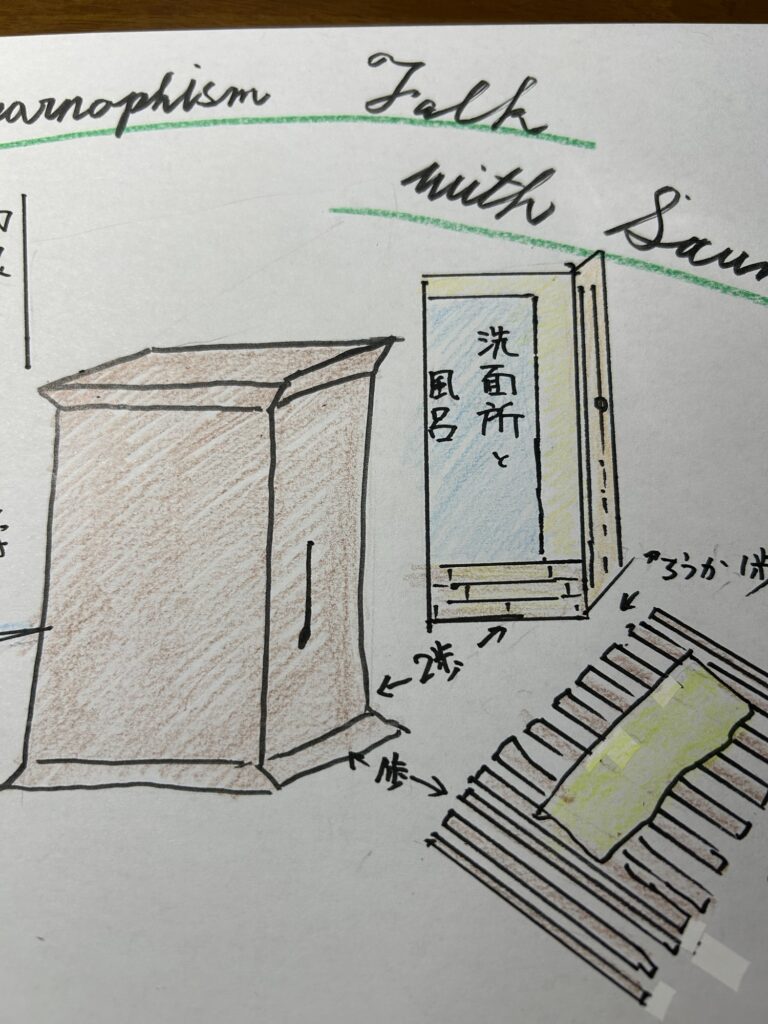 Talk
with Saun
洗面所と
風呂
ろうか 1歩
2歩
1歩